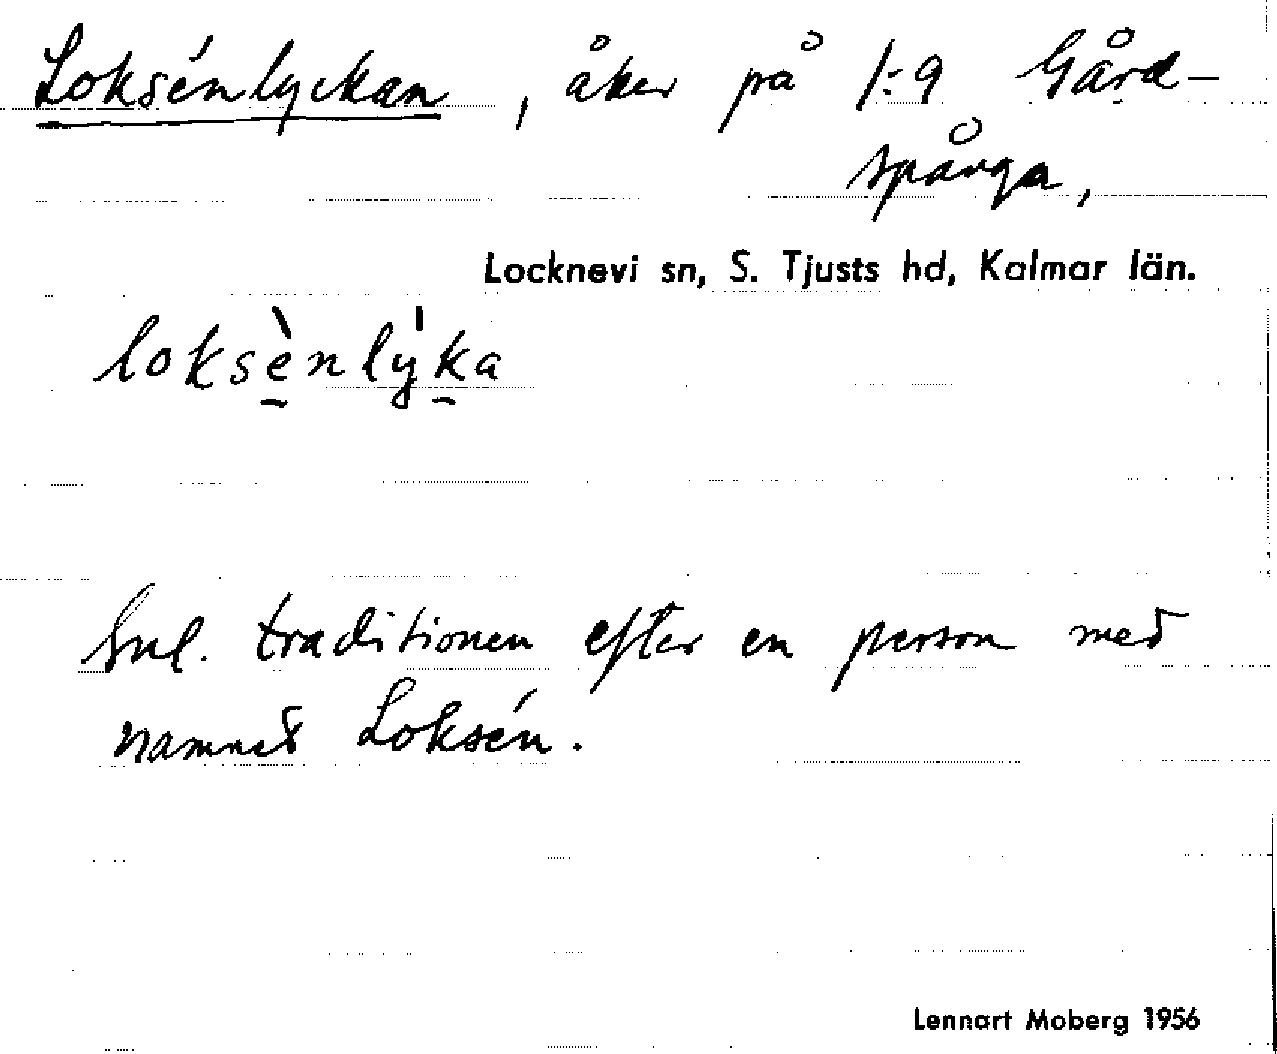 Loksénlyckan, åker på 1:9 Gård-
spånga,
Locknevi sn, S. Tjusts hd, Kalmar län.
loksè̱nlý̱ḵa
Enl. traditionen efter en person med
namnet Loksén.
Lennart Moberg 1956